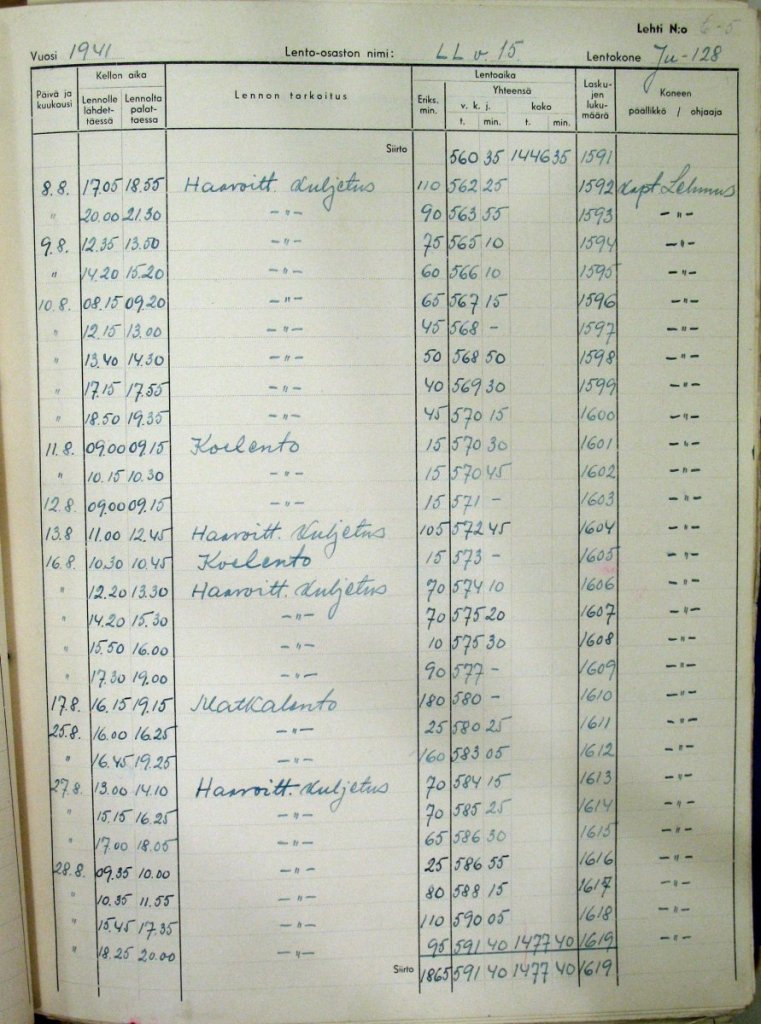 Lehti N:o 6-5
Vuosi 1941 Lento-osaston nimi: LLv. 15. Lentokone Ju-128
Päivä ja kuukausi Kellon aika Lennon tarkoitus Lentoaika Laskujen lukumäärä Koneen päällikkö / ohjaaja
Lennolle lähdettäessä Lennolta palattaessa Eriks. min. Yhteensä
v. k. j. koko
t. min. t. min.
Siirto 560 35 1446 35 1591
8.8. 17.05 18.55 Haavoitt. kuljetus 110 562 25 1592 Kapt. Lehmus
" 20.00 21.30 -"- 90 563 55 1593 -"-
9.8. 12.35 13.50 -"- 75 565 10 1594 -"-
" 14.20 15.20 -"- 60 566 10 1595 -"-
10.8. 08.15 09.20 -"- 65 567 15 1596 -"-
" 12.15 13.00 -"- 45 568 - 1597 -"-
" 13.40 14.30 -"- 50 568 50 1598 -"-
" 17.15 17.55 -"- 40 569 30 1599 -"-
" 18.50 19.35 -"- 45 570 15 1600 -"-
11.8. 09.00 09.15 Koelento 15 570 30 1601 -"-
" 10.15 10.30 -"- 15 570 45 1602 -"-
12.8. 09.00 09.15 -"- 15 571 - 1603 -"-
13.8 11.00 12.45 Haavoitt. kuljetus 105 572 45 1604 -"-
16.8. 10.30 10.45 Koelento 15 573 - 1605 -"-
" 12.20 13.30 Haavoitt. kuljetus 70 574 10 1606 -"-
" 14.20 15.30 -"- 70 575 20 1607 -"-
" 15.50 16.00 -"- 10 575 30 1608 -"-
" 17.30 19.00 -"- 90 577 - 1609 -"-
17.8. 16.15 19.15 Matkalento 180 580 - 1610 -"-
25.8. 16.00 16.25 -"- 25 580 25 1611 -"-
" 16.45 19.25 -"- 160 583 05 1612 -"-
27.8. 13.00 14.10 Haavoitt. kuljetus 70 584 15 1613 -"-
" 15.15 16.25 -"- 70 585 25 1614 -"-
" 17.00 18.05 -"- 65 586 30 1615 -"-
28.8. 09.35 10.00 -"- 25 586 55 1616 -"-
" 10.35 11.55 -"- 80 588 15 1617 -"-
" 15.45 17.35 -"- 110 590 05 1618 -"-
" 18.25 20.00 -"- 95 591 40 1477 40 1619 -"-
Siirto 1865 591 40 1477 40 1619